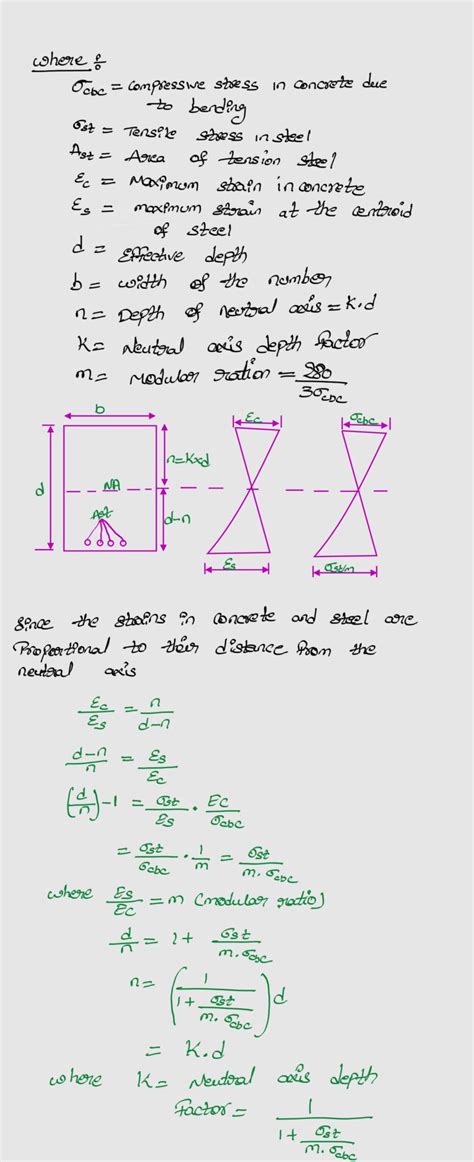 where :
σcbc = compressive stress in concrete due
to bending
σst = Tensile stress in steel
Ast = Area of tension steel
Ec = Maximum strain in concrete
Es = maximum strain at the centroid
of steel
d = Effective depth
b = width of the number
n = Depth of neutral axis = K.d
K = Neutral axis depth factor
m = Modular ration = 280/3σcbc
b
Ec
σcbc
n=K×d
d
NA
Ast
d-n
Es
σst/m
Since the strains in concrete and steel are
Proportional to their distance from the
neutral axis
Ec/Es = n/d-n
d-n/n = Es/Ec
(d/n)-1 = σst/Es . Ec/σcbc
= σst/σcbc . 1/m = σst/m.σcbc
where Es/Ec = m (modular ratio)
d/n = 1+ σst/m.σcbc
n = (1/1+σst/m.σcbc)d
= K.d
where K = Neutral axis depth
factor = 1/1+σst/m.σcbc